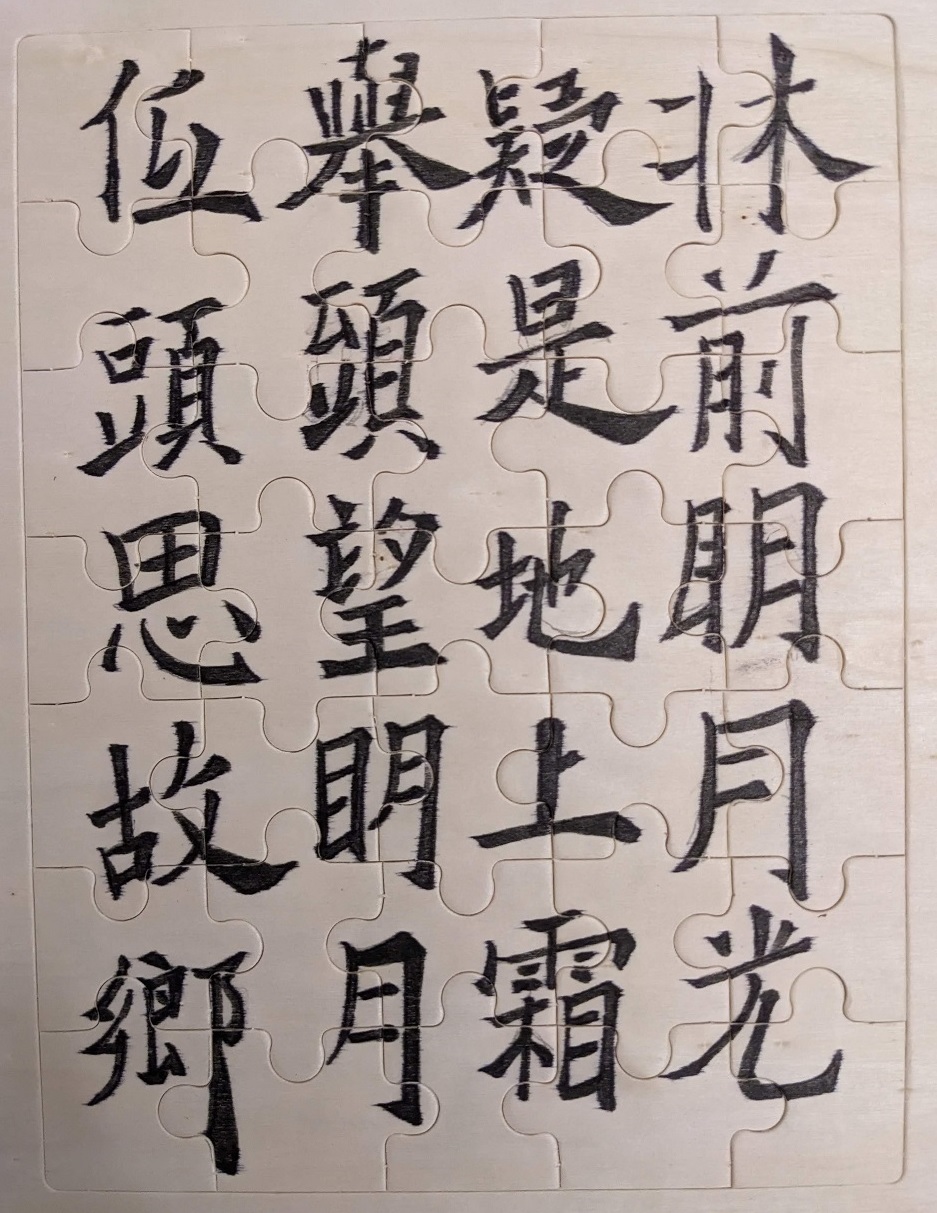 牀前眀月光
疑是地上霜
舉頭望眀月
低頭思故鄉